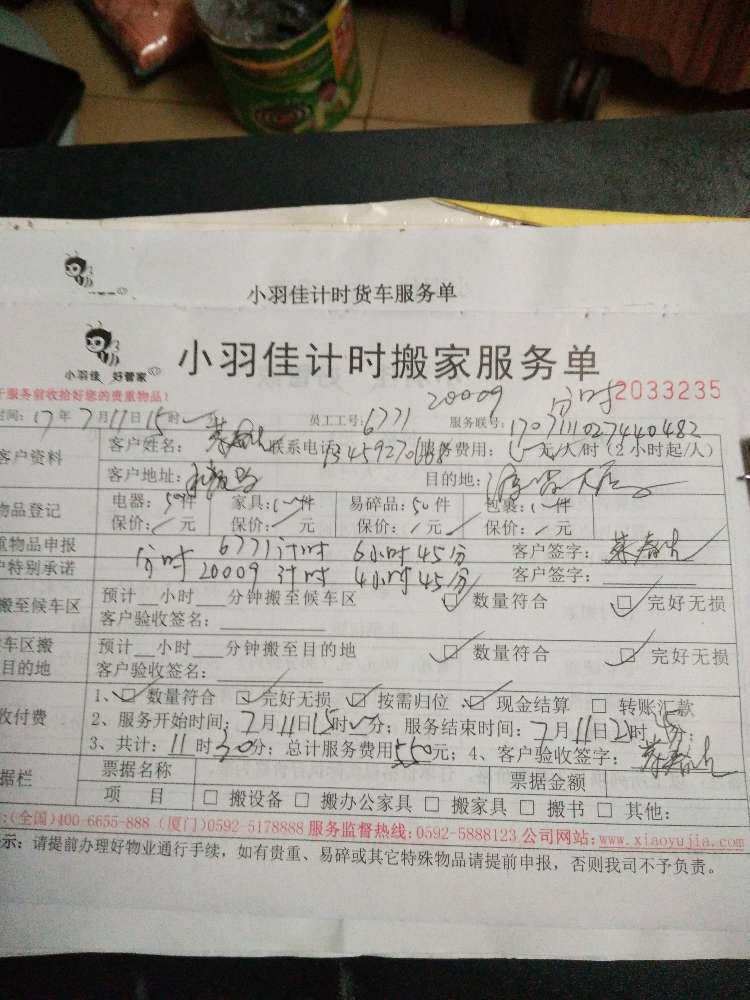 小羽佳计时货车服务单
小羽佳 好管家
小羽佳计时搬家服务单
20009 分时
2033235
服务前收拾好您的贵重物品!
时间: 17年7月11日15时 员工工号: 6771 服务联号: 170711102744048 2
客户资料
客户姓名: 联系电话: 服务费用: 元/人/时(2小时起/人)
客户地址: 目的地:
物品登记
电器: 50件 家具: 件 易碎品: 50件 包裹: 件
保价: 元 保价: 元 保价: 元 保价: 元
重物品申报 分时 6771计时 6小时45分 客户签字:
特别承诺 20009 计时 4小时45分 客户签字:
搬至候车区
预计 小时 分钟搬至候车区 ☑ 数量符合 ☑ 完好无损
客户验收签名:
车区搬
目的地
预计 小时 分钟搬至目的地 ☑ 数量符合 ☑ 完好无损
客户验收签名:
收付费
1、☑ 数量符合 ☑ 完好无损 ☑ 按需归位 ☑ 现金结算 □ 转账汇款
2、服务开始时间: 7月11日15时 分; 服务结束时间: 7月11日21时45分;
3、共计: 11时30分; 总计服务费用550元; 4、客户验收签字:
据栏
票据名称 票据金额
项 目 □ 搬设备 □ 搬办公家具 □ 搬家具 □ 搬书 □ 其他:
:(全国)400-6655-888 (厦门)0592-5178888 服务监督热线: 0592-5888123 公司网站: www.xiaoyujia.com
示: 请提前办理好物业通行手续, 如有贵重、易碎或其它特殊物品请提前申报, 否则我司不予负责。